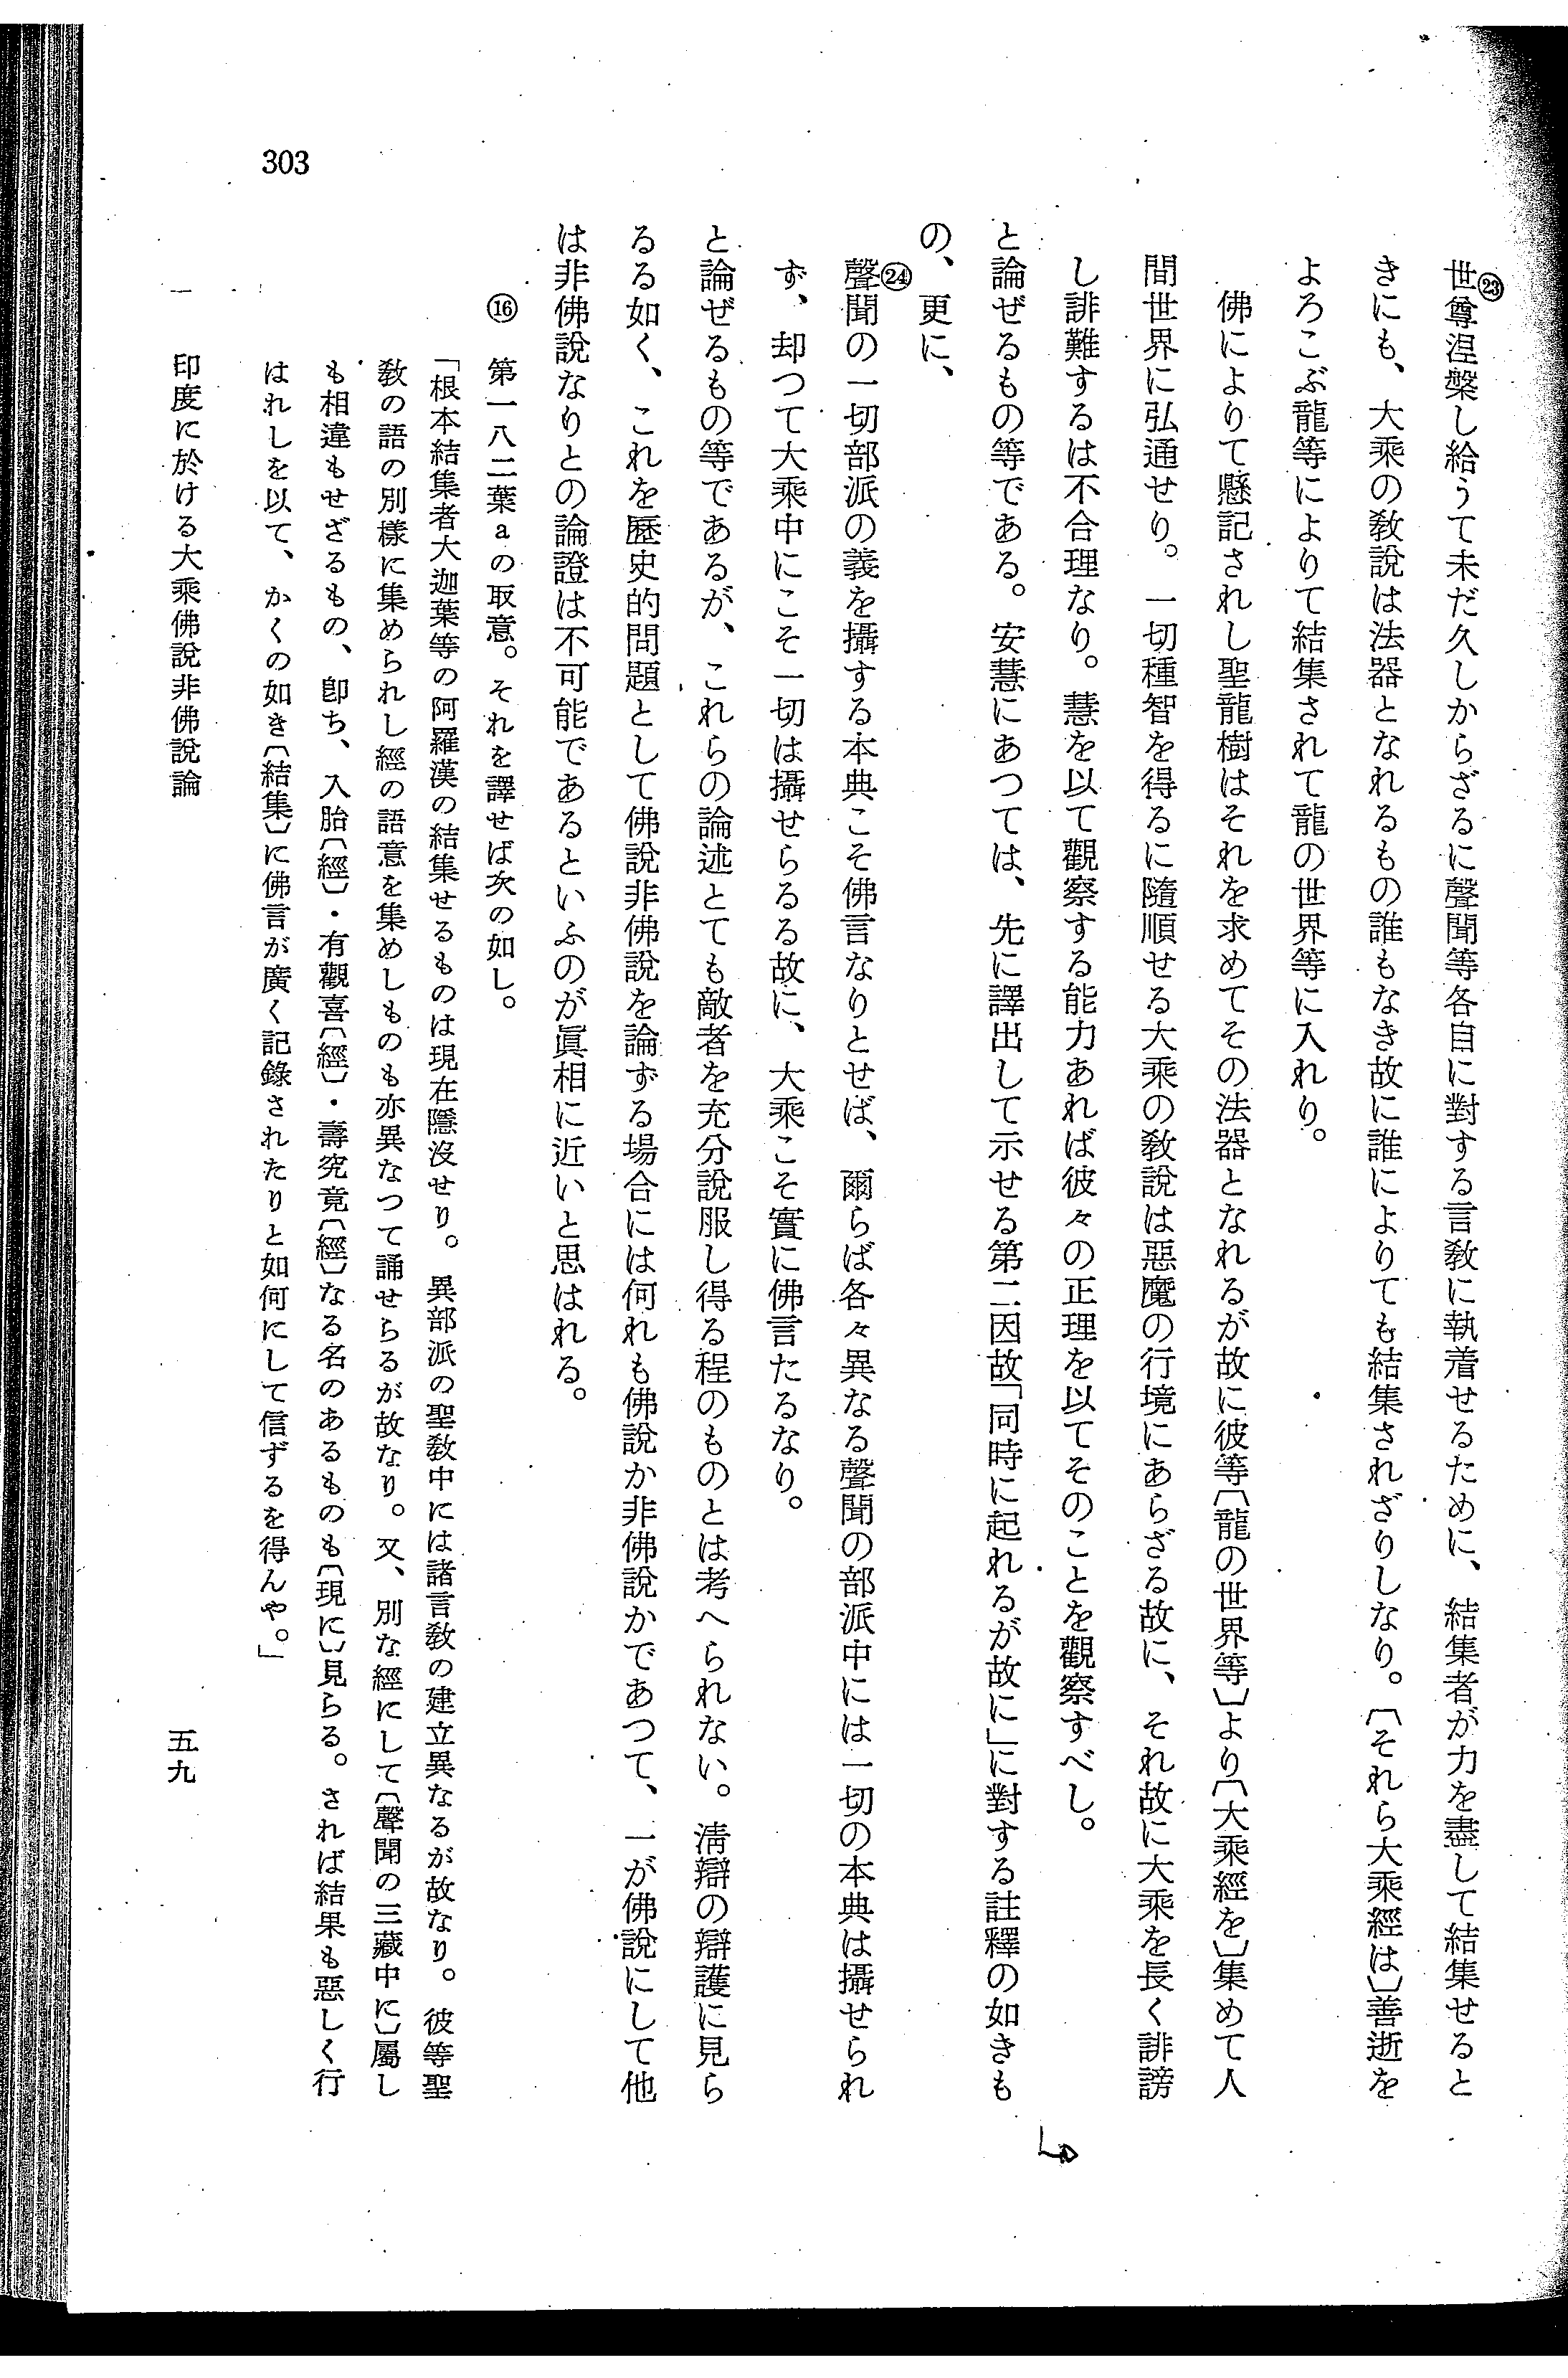 ㉓
世尊涅槃し給うて未だ久しからざるに聲聞等各自に對する言敎に執着せるために、結集者が力を盡して結集せると
きにも、大乘の敎說は法器となれるもの誰もなき故に誰によりても結集されざりしなり。〔それら大乘經は〕善逝を
よろこぶ龍等によりて結集されて龍の世界等に入れり。
佛によりて懸記されし聖龍樹はそれを求めてその法器となれるが故に彼等〔龍の世界等〕より〔大乘經を〕集めて人
間世界に弘通せり。一切種智を得るに隨順せる大乘の敎說は惡魔の行境にあらざる故に、それ故に大乘を長く誹謗
し誹難するは不合理なり。慧を以て觀察する能力あれば彼々の正理を以てそのことを觀察すべし。
と論ぜるもの等である。安慧にあつては、先に譯出して示せる第二因故「同時に起れるが故に」に對する註釋の如きも
の、更に、
㉔
聲聞の一切部派の義を攝する本典こそ佛言なりとせば、爾らば各々異なる聲聞の部派中には一切の本典は攝せられ
ず、却つて大乘中にこそ一切は攝せらるる故に、大乘こそ實に佛言たるなり。
と論ぜるもの等であるが、これらの論述とても敵者を充分說服し得る程のものとは考へられない。淸辯の辯護に見ら
るる如く、これを歷史的問題として佛說非佛說を論ずる場合には何れも佛說か非佛說かであつて、一が佛說にして他
は非佛說なりとの論證は不可能であるといふのが眞相に近いと思はれる。
⑯ 第一八二葉aの取意。それを譯せば次の如し。
「根本結集者大迦葉等の阿羅漢の結集せるものは現在隱沒せり。異部派の聖敎中には諸言敎の建立異なるが故なり。彼等聖
敎の語の別樣に集められし經の語意を集めしものも亦異なつて誦せらるが故なり。又、別な經にして〔聲聞の三藏中に〕屬し
も相違もせざるもの、卽ち、入胎〔經〕・有觀喜〔經〕・壽究竟〔經〕なる名のあるものも〔現に〕見らる。されば結果も惡しく行
はれしを以て、かくの如き〔結集〕に佛言が廣く記錄されたりと如何にして信ずるを得んや。」
一 印度に於ける大乘佛說非佛說論
五九
303